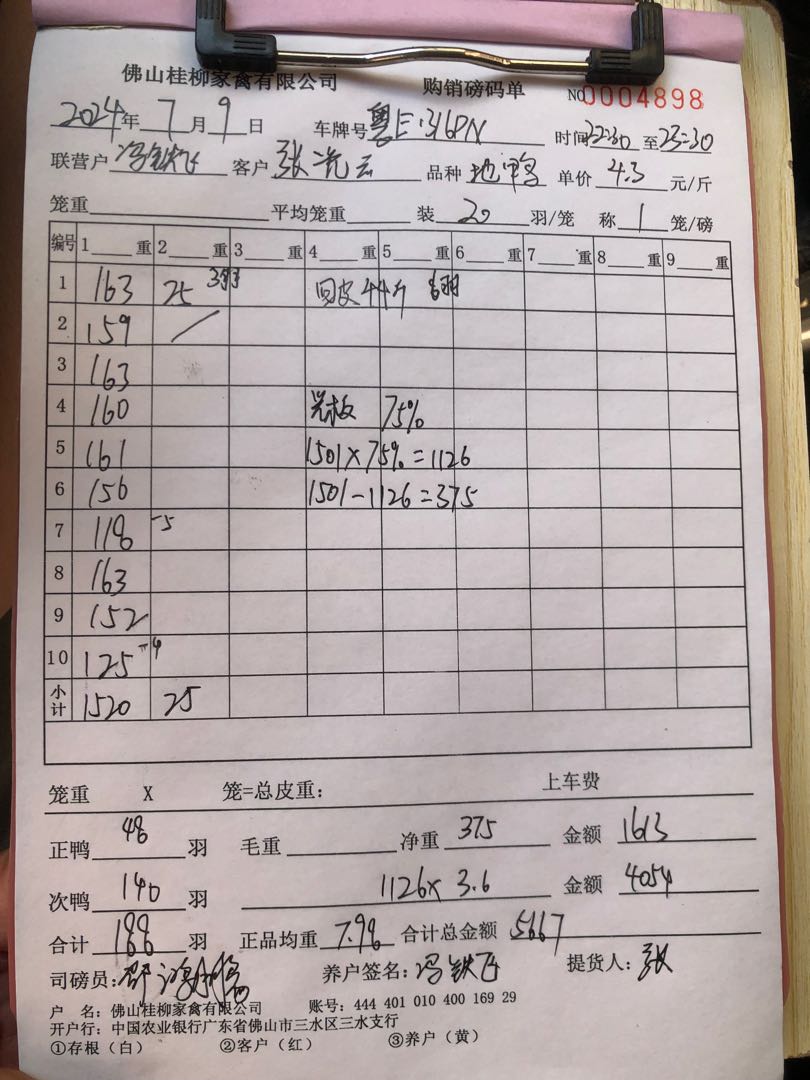 佛山桂柳家禽有限公司 购销磅码单 NO0004898
2024年 7 月 9 日 车牌号 粤E·316PN 时间22:30 至23:30
联营户 冯铁飞 客户 张 云 品种 地鸭 单价 4.3 元/斤
笼重 平均笼重 装 20 羽/笼 称 1 笼/磅
编号 1 重 2 重 3 重 4 重 5 重 6 重 7 重 8 重 9 重
1 163 25 回皮44斤
2 159 /
3 163
4 160 光板 75%
5 161 1501×75%=1126
6 156 1501-1126=375
7 118 -5
8 163
9 152
10 125
小计 1520 25
笼重 X 笼=总皮重: 上车费
正鸭 48 羽 毛重 净重 375 金额 1613
次鸭 140 羽 1126× 3.6 金额 4054
合计 188 羽 正品均重 7.98 合计总金额 5667
司磅员: 养户签名: 冯铁飞 提货人: 张
户 名: 佛山桂柳家禽有限公司 账号: 444 401 010 400 169 29
开户行: 中国农业银行广东省佛山市三水区三水支行
①存根（白） ②客户（红） ③养户（黄）